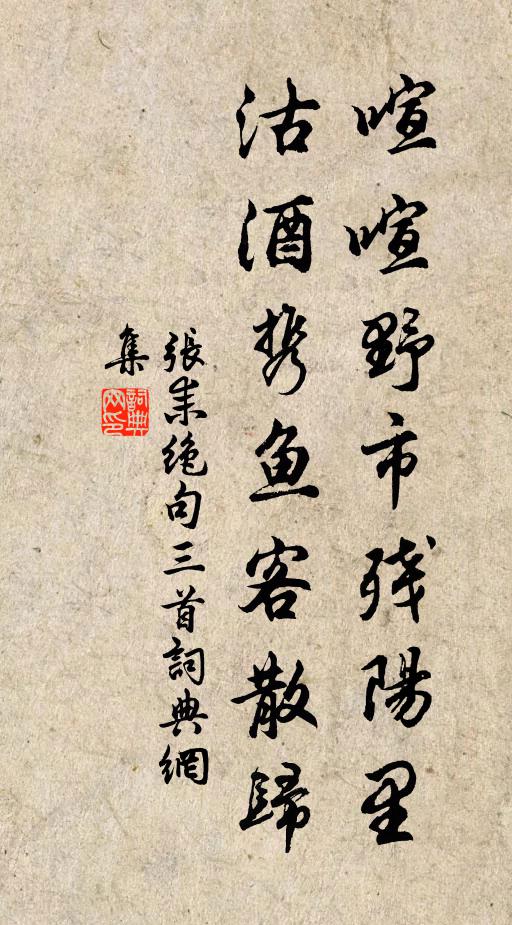 喧喧野市残陽里
沽酒携鱼客散歸
張耒绝句三首詞典網
集
詞典
网印